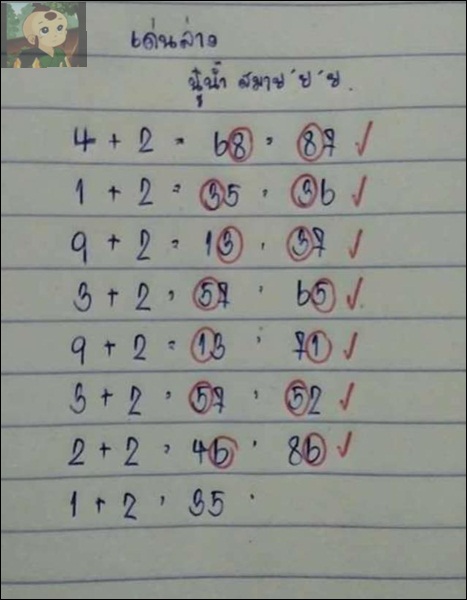 เด่นล่าง
ปู่น้ำ สมาย ย ย.
4 + 2 = 68 = 87 ✓
1 + 2 = 35 . 36 ✓
9 + 2 = 13 . 37 ✓
3 + 2 , 57 . 65 ✓
9 + 2 = 13 , 71 ✓
3 + 2 , 57 . 52 ✓
2 + 2 , 46 . 86 ✓
1 + 2 , 35 .